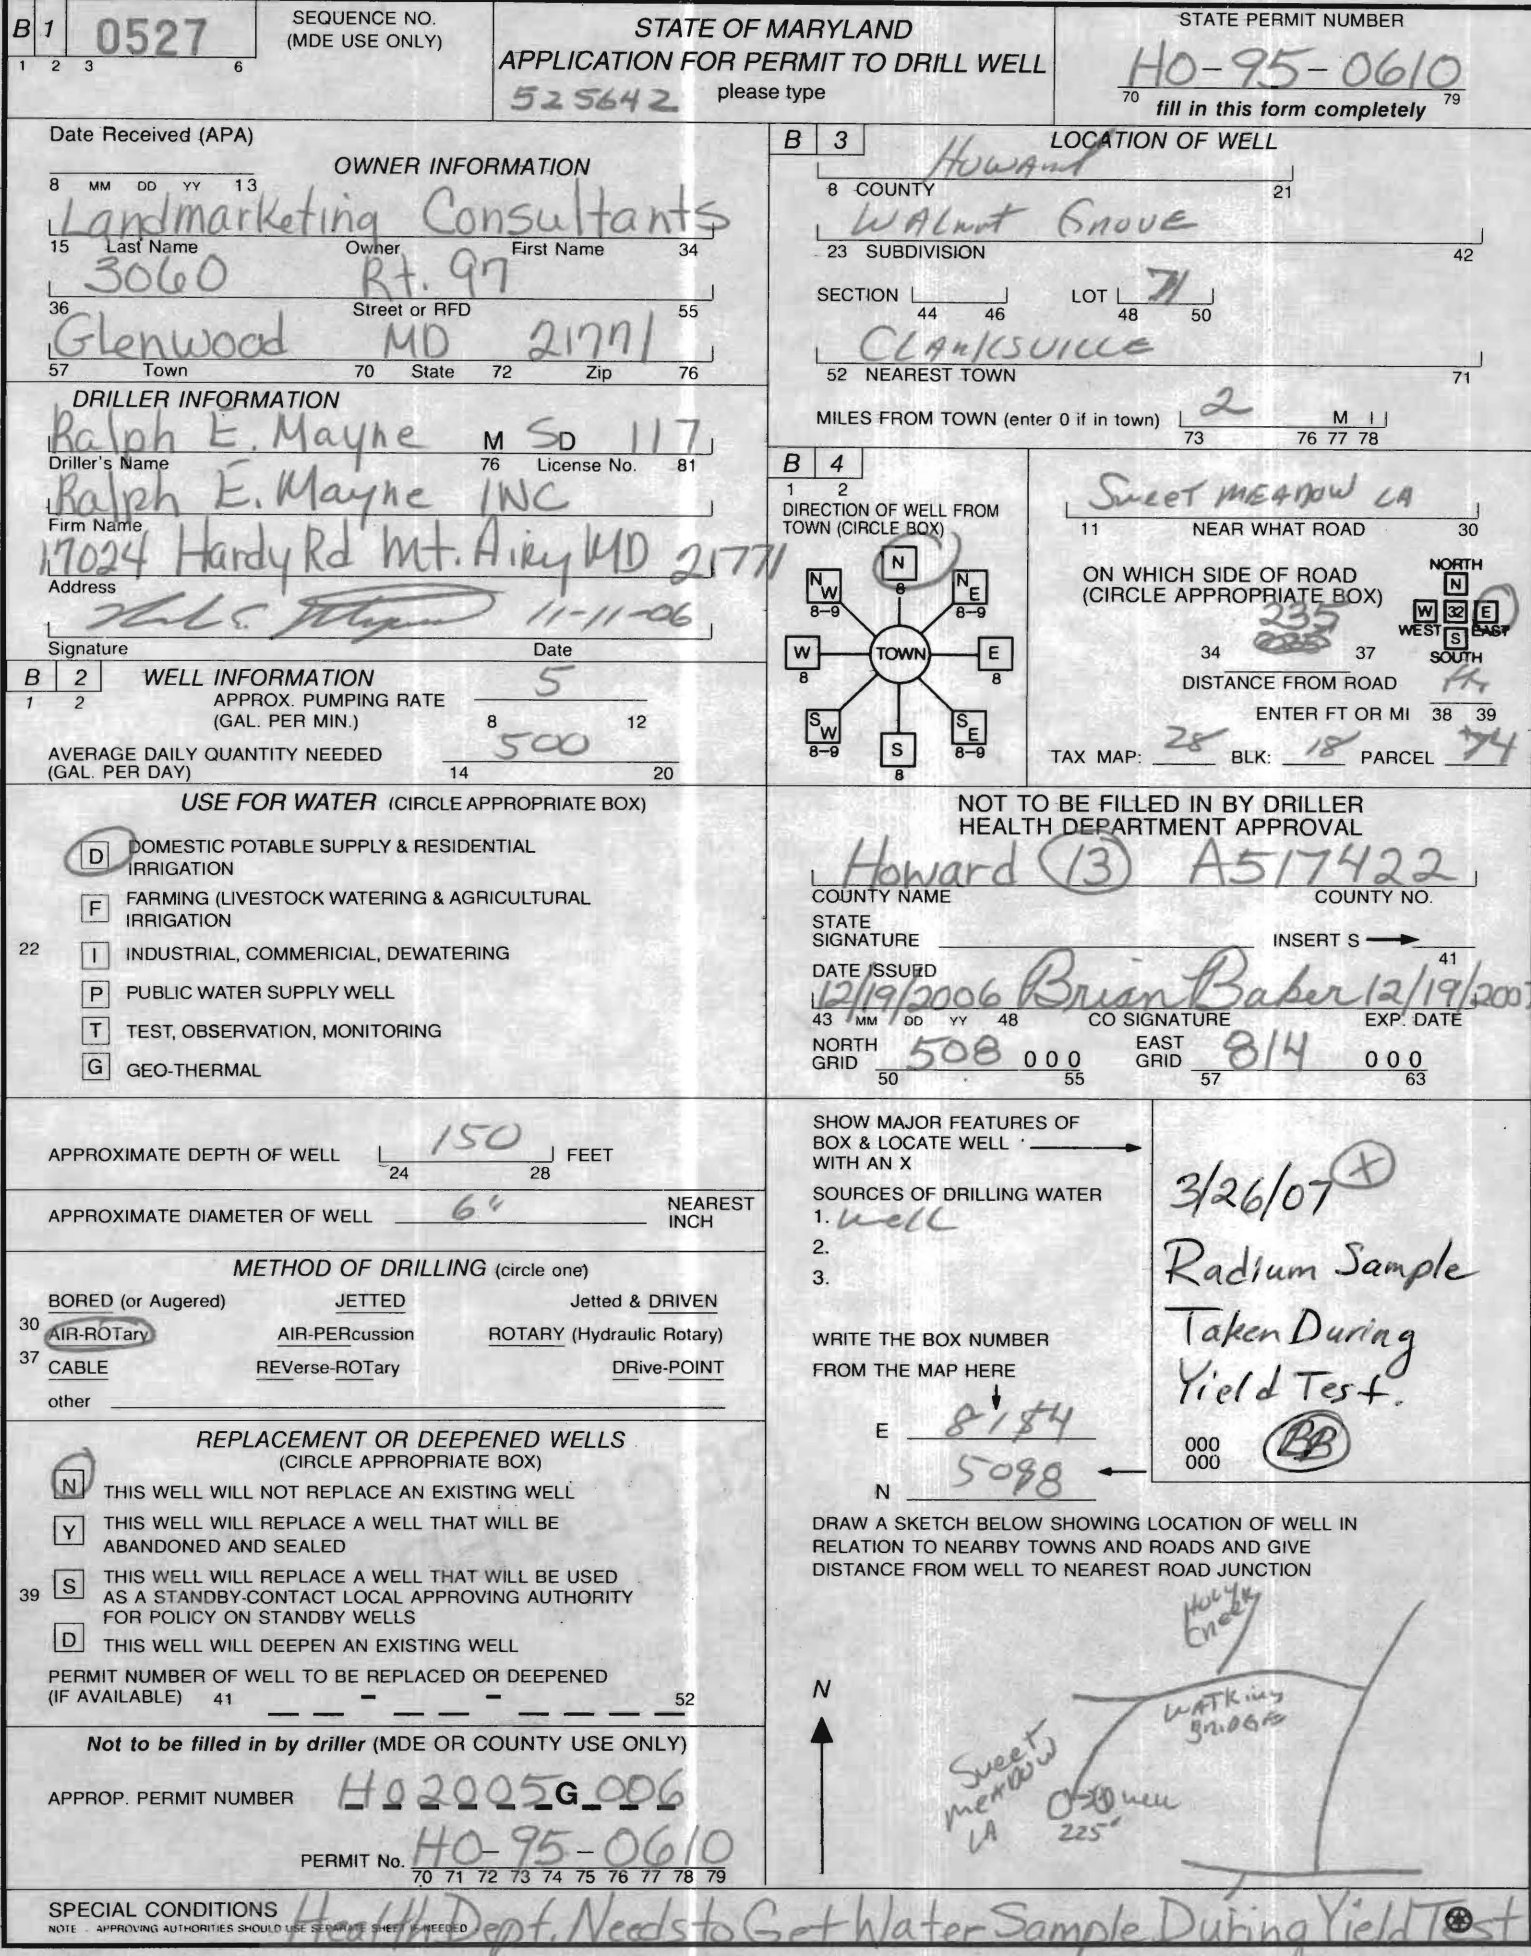 B 1 0527 SEQUENCE NO. (MDE USE ONLY)
1 2 3 6
STATE OF MARYLAND
APPLICATION FOR PERMIT TO DRILL WELL
525642 please type
STATE PERMIT NUMBER
HO-95-0610
70 79
fill in this form completely
Date Received (APA)
OWNER INFORMATION
8 MM DD YY 13
Landmarketing Consultants
15 Last Name Owner First Name 34
3060 Rt. 97
36 Street or RFD 55
Glenwood MD 21771
57 Town 70 State 72 Zip 76
DRILLER INFORMATION
Ralph E. Mayne M SD 117
Driller's Name 76 License No. 81
Ralph E. Mayne INC
Firm Name
17024 Hardy Rd Mt. Airy MD 21771
Address
11-11-06
Signature Date
B 2 WELL INFORMATION
1 2 APPROX. PUMPING RATE 5
(GAL. PER MIN.) 8 12
AVERAGE DAILY QUANTITY NEEDED 500
(GAL. PER DAY) 14 20
USE FOR WATER (CIRCLE APPROPRIATE BOX)
D DOMESTIC POTABLE SUPPLY & RESIDENTIAL
IRRIGATION
F FARMING (LIVESTOCK WATERING & AGRICULTURAL
IRRIGATION
22 I INDUSTRIAL, COMMERICIAL, DEWATERING
P PUBLIC WATER SUPPLY WELL
T TEST, OBSERVATION, MONITORING
G GEO-THERMAL
APPROXIMATE DEPTH OF WELL 150 FEET
24 28
APPROXIMATE DIAMETER OF WELL 6" NEAREST
INCH
METHOD OF DRILLING (circle one)
BORED (or Augered) JETTED Jetted & DRIVEN
30 AIR-ROTary AIR-PERcussion ROTARY (Hydraulic Rotary)
37 CABLE REVerse-ROTary DRive-POINT
other
REPLACEMENT OR DEEPENED WELLS
(CIRCLE APPROPRIATE BOX)
N THIS WELL WILL NOT REPLACE AN EXISTING WELL
Y THIS WELL WILL REPLACE A WELL THAT WILL BE
ABANDONED AND SEALED
39 S THIS WELL WILL REPLACE A WELL THAT WILL BE USED
AS A STANDBY-CONTACT LOCAL APPROVING AUTHORITY
FOR POLICY ON STANDBY WELLS
D THIS WELL WILL DEEPEN AN EXISTING WELL
PERMIT NUMBER OF WELL TO BE REPLACED OR DEEPENED
(IF AVAILABLE) 41 - - 52
Not to be filled in by driller (MDE OR COUNTY USE ONLY)
APPROP. PERMIT NUMBER HO2005G006
PERMIT No. HO-95-0610
70 71 72 73 74 75 76 77 78 79
B 3 LOCATION OF WELL
Howard
8 COUNTY 21
Walnut Grove
23 SUBDIVISION 42
SECTION LOT 71
44 46 48 50
CLARKSVILLE
52 NEAREST TOWN 71
MILES FROM TOWN (enter 0 if in town) 2 M I
73 76 77 78
B 4
1 2
DIRECTION OF WELL FROM
TOWN (CIRCLE BOX)
N
8
NW NE
8-9 8-9
W TOWN E
8 8
SW SE
8-9 8-9
S
8
Sweet MEADOW LA
11 NEAR WHAT ROAD 30
ON WHICH SIDE OF ROAD
(CIRCLE APPROPRIATE BOX)
NORTH
N
W 32 E
WEST EAST
S
SOUTH
235
34 37
DISTANCE FROM ROAD
ft
ENTER FT OR MI 38 39
TAX MAP: 28 BLK: 18 PARCEL 74
NOT TO BE FILLED IN BY DRILLER
HEALTH DEPARTMENT APPROVAL
Howard 13 A517422
COUNTY NAME COUNTY NO.
STATE
SIGNATURE INSERT S
41
DATE ISSUED
12/19/2006 Brian Baker 12/19/2007
43 MM DD YY 48 CO SIGNATURE EXP. DATE
NORTH GRID 508 000 EAST GRID 814 000
50 55 57 63
SHOW MAJOR FEATURES OF
BOX & LOCATE WELL
WITH AN X
SOURCES OF DRILLING WATER
1. well
2.
3.
WRITE THE BOX NUMBER
FROM THE MAP HERE
E 8184
N 5098
3/26/07 X
Radium Sample
Taken During
Yield Test.
BB
000
000
DRAW A SKETCH BELOW SHOWING LOCATION OF WELL IN
RELATION TO NEARBY TOWNS AND ROADS AND GIVE
DISTANCE FROM WELL TO NEAREST ROAD JUNCTION
Creek
N
BRIDGE
Sweet
MEADOW
LA
well
225'
SPECIAL CONDITIONS
NOTE - APPROVING AUTHORITIES SHOULD USE SEPARATE SHEET IF NEEDED
Health Dept. Needs to Get Water Sample During Yield Test